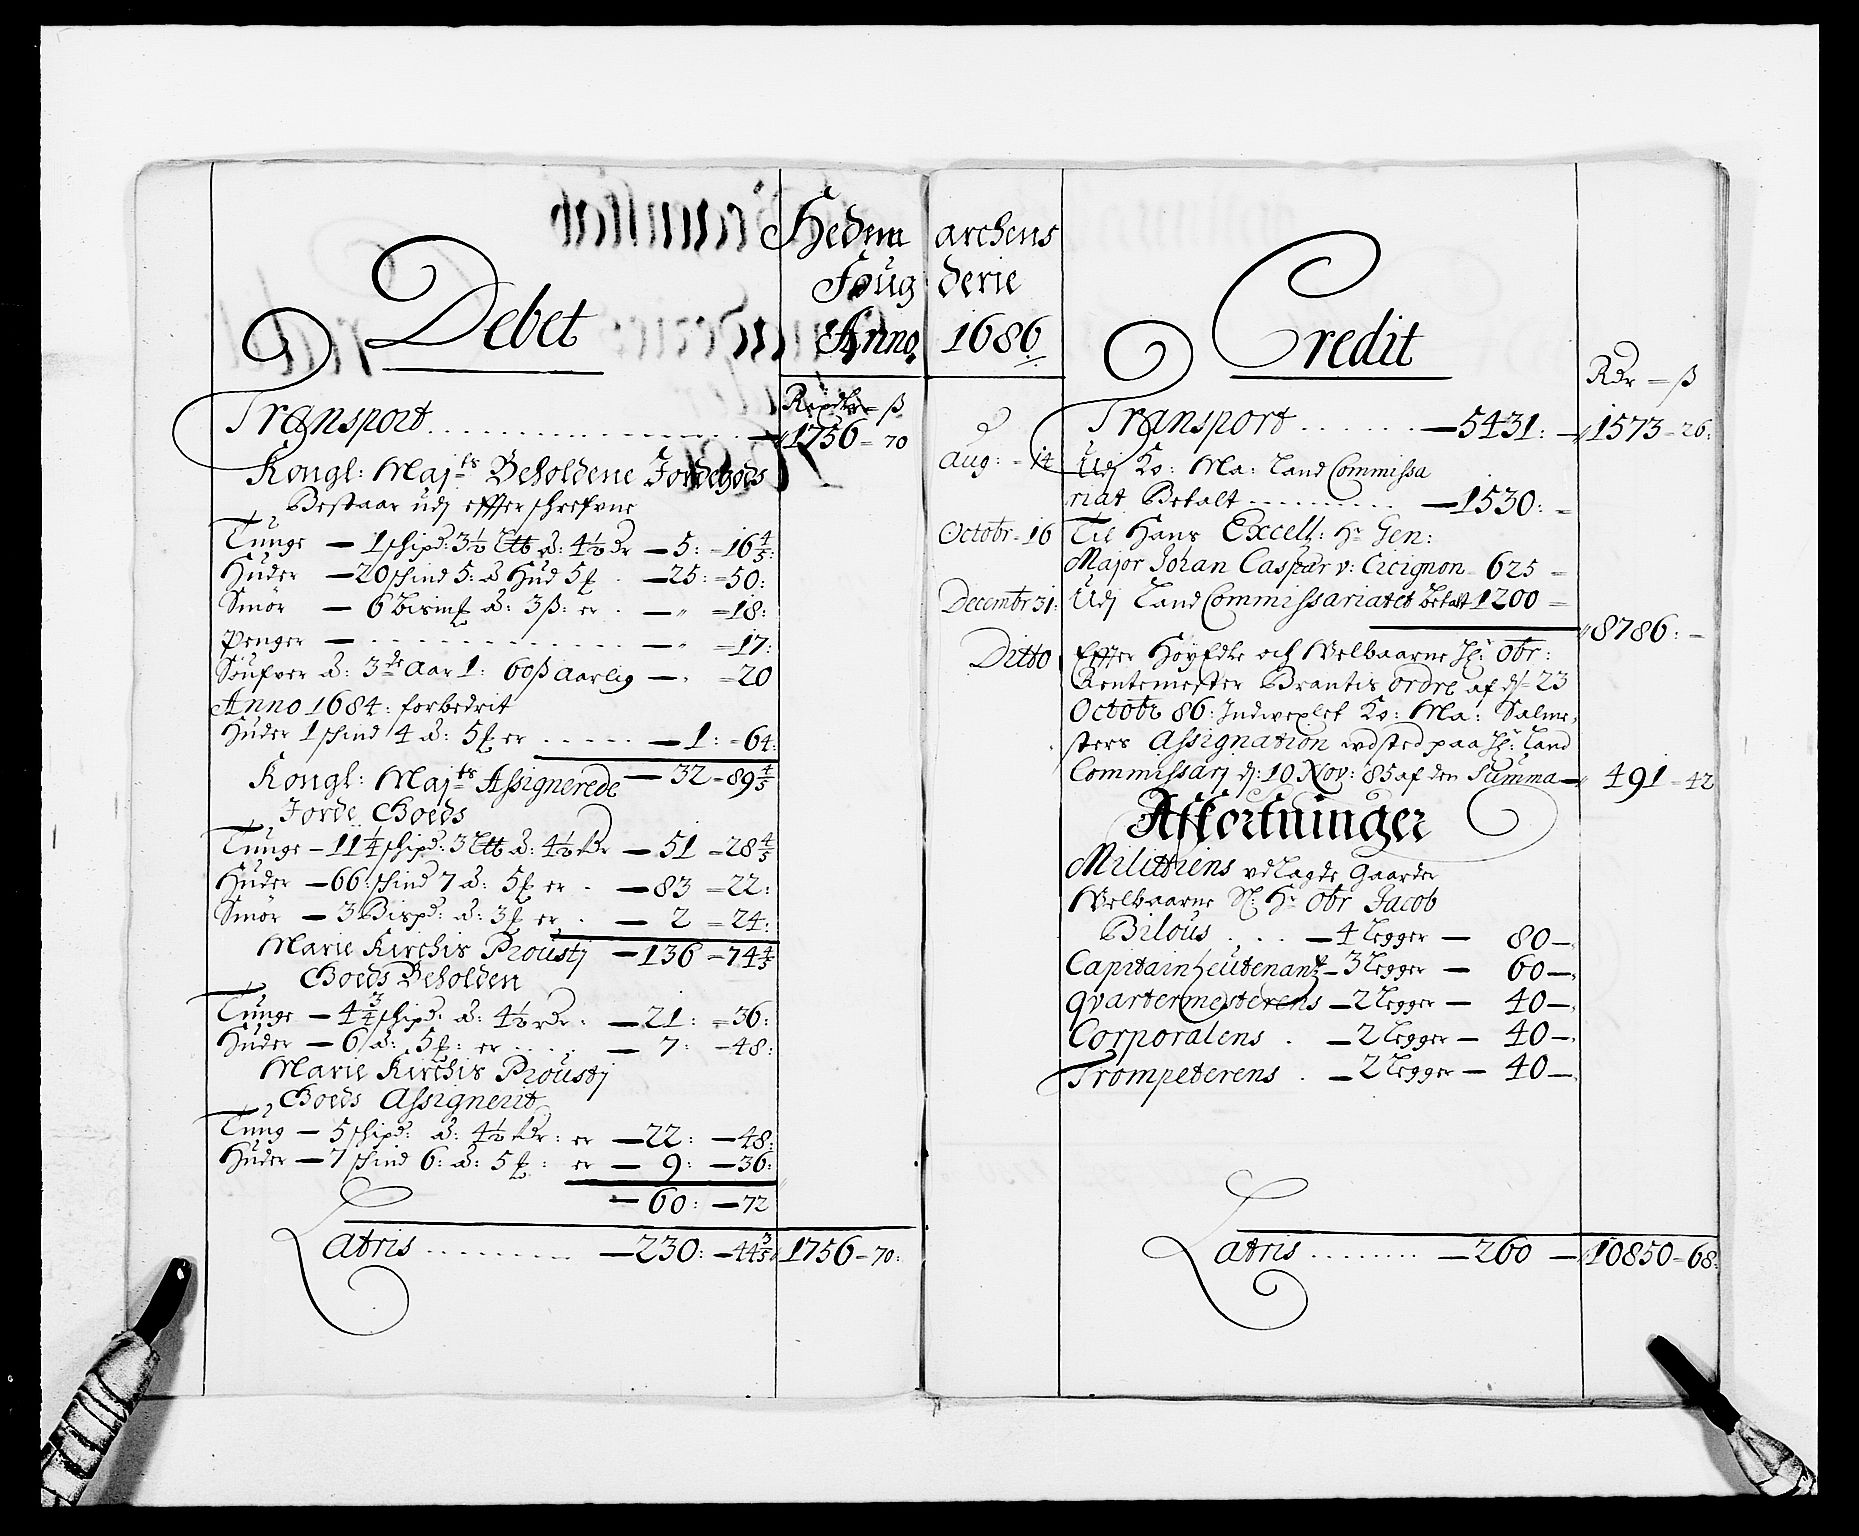 Hedem archens
Foug derie
Anno 1686
Debet
Rixdlr = ß
Transport . . . . . 1756 = 70
Kongl: Maj:ts Beholdene Jordegods
Bestaar udj effterschrefvne
Tunge — 1 schipd: 3½ Ltb a: 4½ Dr — 5: = 16⅘:
Huder — 20 schind 5: a Hud 5 — 25: = 50:
Smör — 6 bismℓ a: 3 ß: er . — " = 18:
Penger — . . . . . — " = 17:
a: 3de Aar 1: 60 ß aarlig — " = 20
Anno 1684: forbedrit
Huder 1 schind 4 a: 5 er . . . . — 1: = 64:
— 32 = 89⅘
Kongl: Maj:ts Assignerede
Jorde Goeds
Tunge — 11¼ schipd: 3 Ltb a: 4½ Rdr — 51 = 28⅘
Huder — 66: schind 7 a: 5 er . — 83 = 22:
Smör — 3 Bispd: a: 3 er . — 2 = 24:
— 136 = 74⅘
Marie Kirchis Proustj
Goeds Beholden
Tunge — 4¾ schipd: a: 4½ rdr: — 21: = 36:
Huder — 6 a: 5: er . . . . — 7: — 48:
Marie Kirchis Proustj
Goeds Assignerit
Tung — 5 schipd: a: 4½ Rdr: er — 22: — 48:
Huder — 7 schind 6: a: 5: er — 9: — 36:
— 60: — 72
Latris . . . . . — 230: — 44⅗ 1756 = 70:
Credit
Rdr = ß
Transport . . . . . — 5431: — 1573 = 26:
Aug: = 14 Udj Ko: Ma: Land Commissa
riat Betalt . . . . . — 1530: =
Octobr = 16 Til Hans Excell: Hr Gen:
Major Johan Caspar v: Cicignon = 625 =
Decembr 31: Udj Land Commissariatet betalt 1200 =
8786: =
Ditto Effter Höyedle och Welbaarne Hr: Obr:
Rentemester Brantis ordre af d: 23
Octobr 86: Indvexlet Ko: Ma: Salme,
sters Assignation udsted paa Hr: Land
Commissarj d: 10 Nov: 85 af den Summa — 491 = 42
Affkortninger
Militiens udlagde Gaarder
Welbaarne Sl: Hr Obr Jacob
Bilous . . . — 4 Legger — 80 —
Capitain Leutenant — 3 Legger — 60 —
Qvartermesterens — 2 Legger — 40 —
Corporalens . — 2 Legger — 40 —
Trompeterens . — 2 Legger — 40 —
Latris . . . . . — 260 — 10850 = 68: